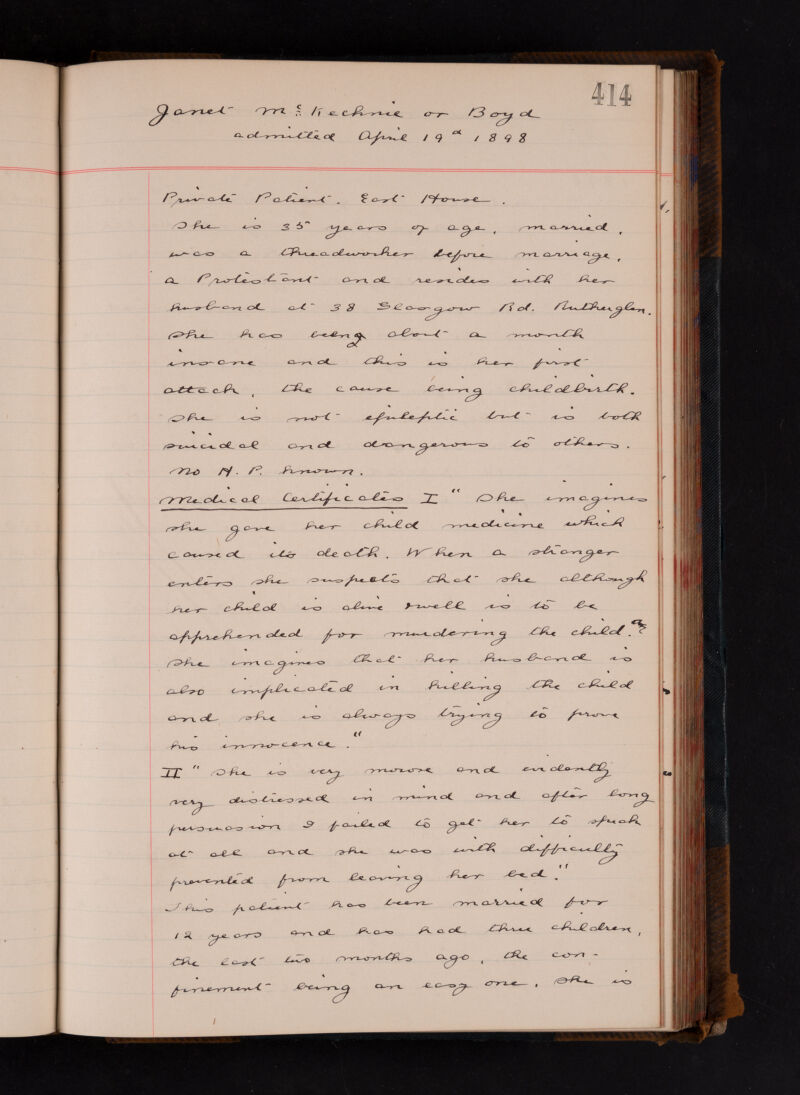 414
Janet McKechnie or Boyd
admitted April 19d 1898
Private Patient. East House.
She is 35 years of age, married,
was a threadworker before marriage,
a Protestant and resides with her
husband at 38 Glasgow Rd. Rutherglen.
She has been about a month
insane and this is her first
attack, the cause being childbirth.
She is not epileptic but is both
suicidal and dangerous to others.
No H. P. known.
Medical Certificates I " She imagines
she gave her child medicine which
caused its death. When a stranger
enters she suspects that she although
her child is alive & well is to be
apprehended for murdering the child.
She imagines that her husband is
also implicated in killing the child
and she is always trying to prove
his innocence."
II " She is very morose and evidently
very distressed in mind and after long
persuasion I failed to get her to speak
at all and she was with difficulty
prevented from leaving her bed."
This patient has been married for
12 years and has had three children,
the last two months ago, the con-
finement being an easy one. She is